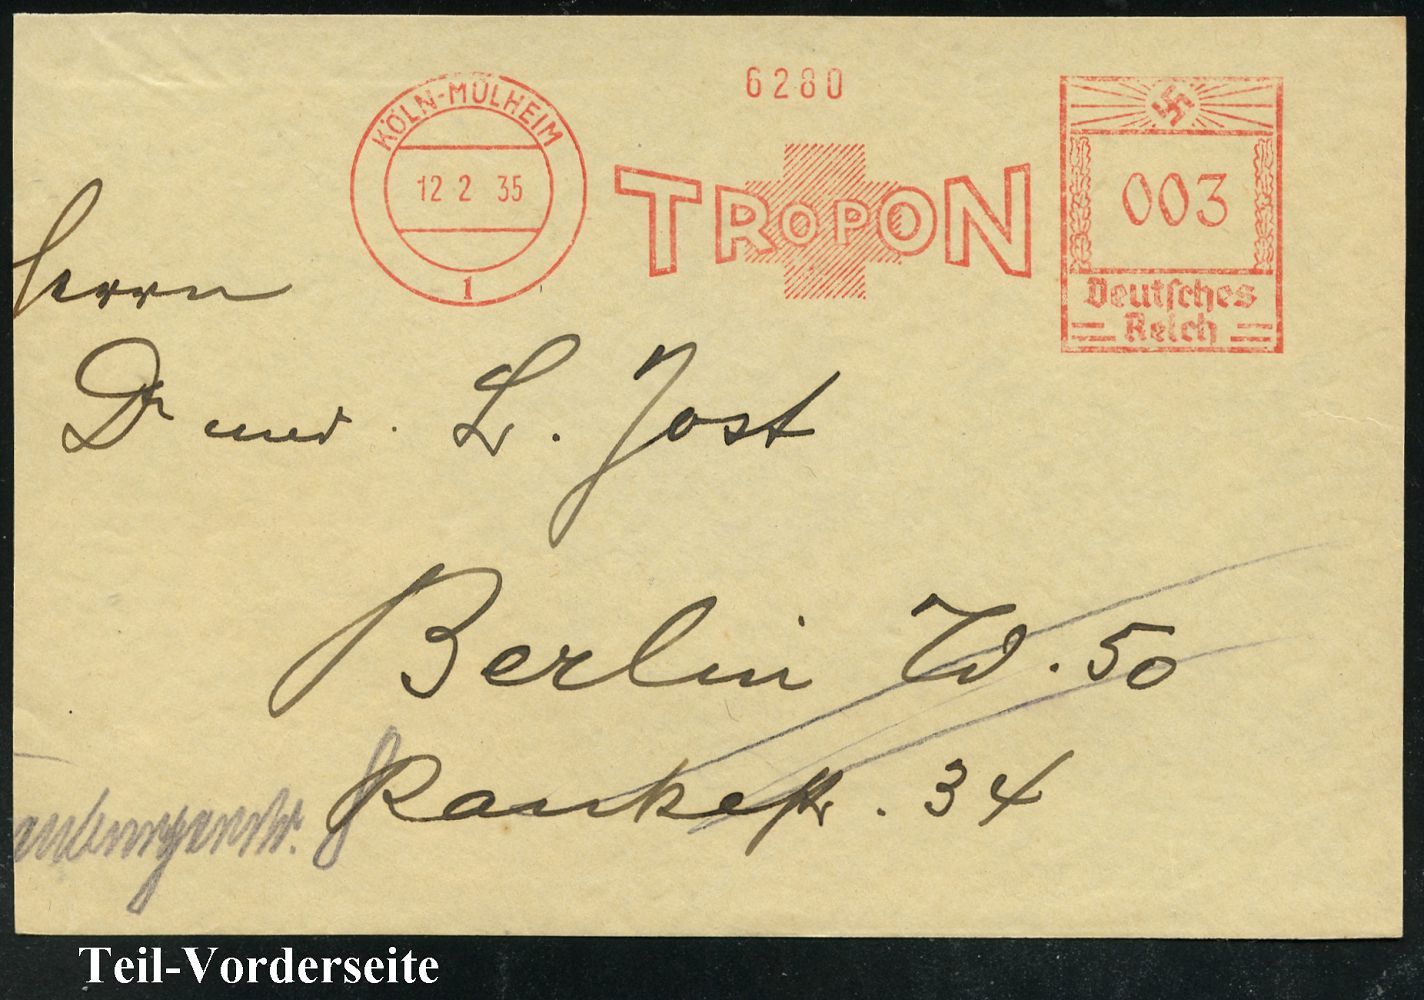 6280
KÖLN-MÜLHEIM
12 2 35
1
TROPON
003
Deutsches
Reich
Herrn
Dr med. L. Jost
Berlin W. 50
Rankestr. 34
Teil-Vorderseite